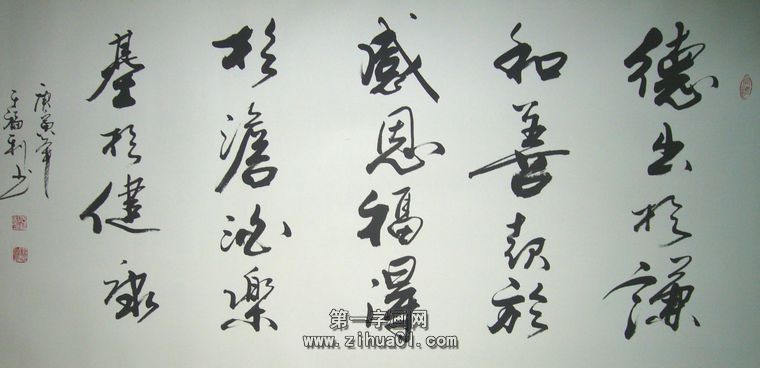 德出於謙
和善於
感恩福澤
於澹泊樂
基於健康
庚寅年
福利书
第一字画网
www.zihua01.com